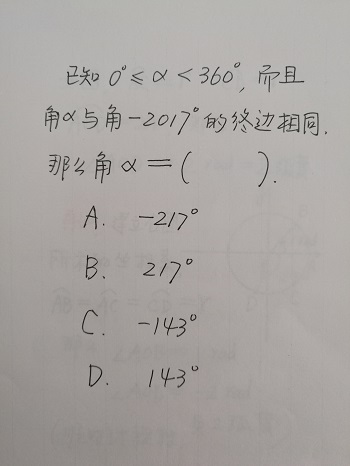 已知 0°≤α<360°, 而且
角α与角-2017°的终边相同.
那么角α=(    ).
A. -217°
B. 217°
C. -143°
D. 143°